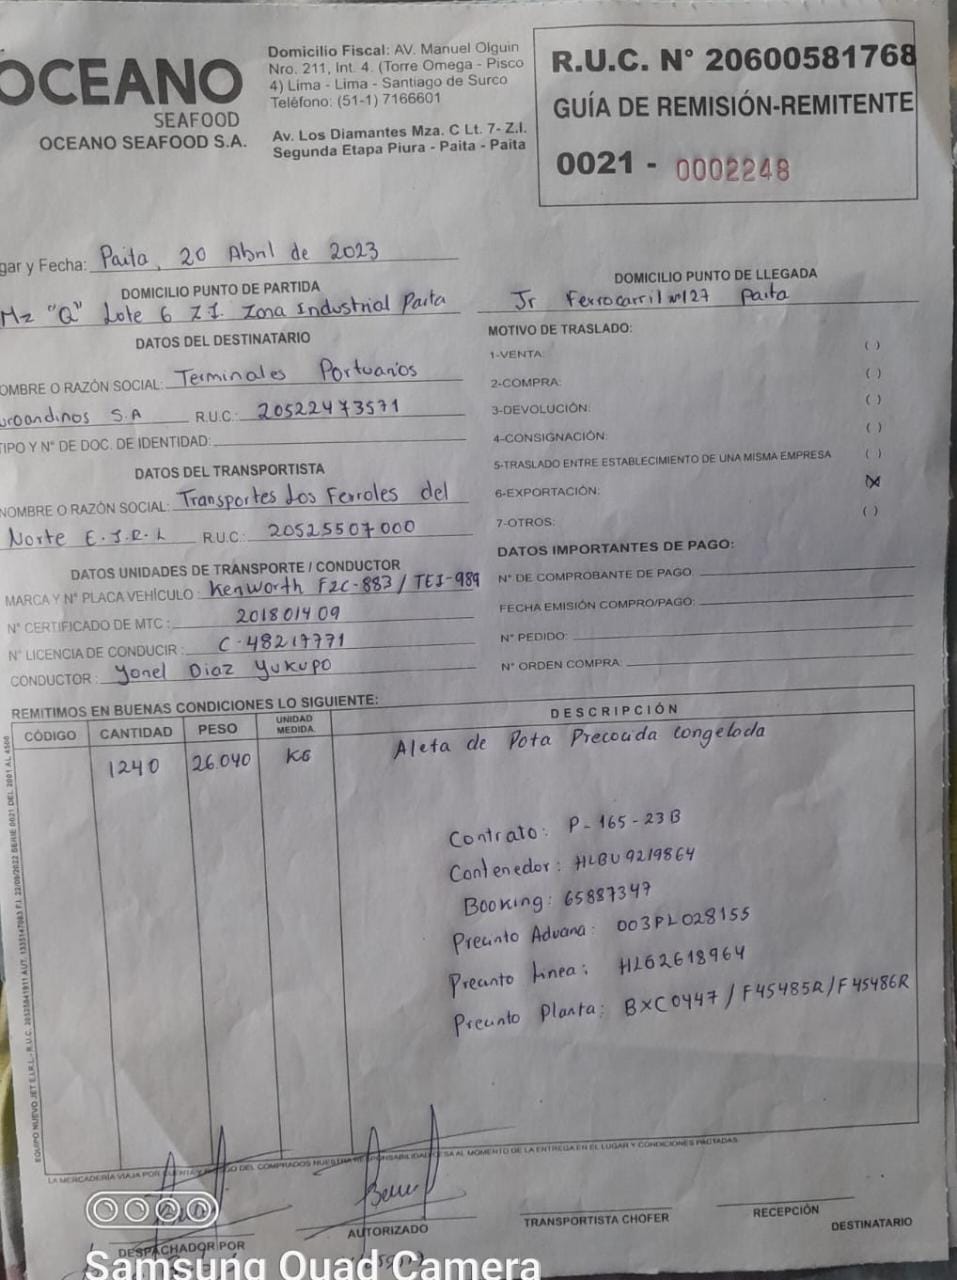 OCEANO
SEAFOOD
OCEANO SEAFOOD S.A.
Domicilio Fiscal: AV. Manuel Olguin
Nro. 211, Int. 4. (Torre Omega - Pisco
4) Lima - Lima - Santiago de Surco
Teléfono: (51-1) 7166601
Av. Los Diamantes Mza. C Lt. 7- Z.I.
Segunda Etapa Piura - Paita - Paita
R.U.C. N° 20600581768
GUÍA DE REMISIÓN-REMITENTE
0021 - 0002248
gar y Fecha: Paita, 20 Abril de 2023
DOMICILIO PUNTO DE PARTIDA
Mz "Q" Lote 6 Z.I. Zona Industrial Paita
DOMICILIO PUNTO DE LLEGADA
Jr Ferrocarril N°127 Paita
DATOS DEL DESTINATARIO
OMBRE O RAZÓN SOCIAL: Terminales Portuarios
uroandinos S.A R.U.C.: 20522473571
TIPO Y N° DE DOC. DE IDENTIDAD:
DATOS DEL TRANSPORTISTA
NOMBRE O RAZÓN SOCIAL: Transportes Los Ferroles del
Norte E.I.R.L R.U.C.: 20525507000
DATOS UNIDADES DE TRANSPORTE / CONDUCTOR
MARCA Y N° PLACA VEHÍCULO: Kenworth F2C-883 / TEJ-989
N° CERTIFICADO DE MTC: 201801409
N° LICENCIA DE CONDUCIR: C-48217771
CONDUCTOR: Yonel Diaz Yukupo
MOTIVO DE TRASLADO:
1-VENTA: ( )
2-COMPRA: ( )
3-DEVOLUCIÓN: ( )
4-CONSIGNACIÓN: ( )
5-TRASLADO ENTRE ESTABLECIMIENTO DE UNA MISMA EMPRESA ( )
6-EXPORTACIÓN: (X)
7-OTROS: ( )
DATOS IMPORTANTES DE PAGO:
N° DE COMPROBANTE DE PAGO:
FECHA EMISIÓN COMPRO/PAGO:
N° PEDIDO:
N° ORDEN COMPRA:
REMITIMOS EN BUENAS CONDICIONES LO SIGUIENTE:
CÓDIGO CANTIDAD PESO UNIDAD MEDIDA DESCRIPCIÓN
1240 26.040 KG Aleta de Pota Precocida Congelada
Contrato: P-165-23B
Contenedor: HLBU9219864
Booking: 65887347
Precinto Aduana: 003PL028155
Precinto Linea: HL62618964
Precinto Planta: BXC0447 / F45485R / F45486R
LA MERCADERÍA VIAJA POR CUENTA Y DEL COMPRADOS NUESTRA RESPONSABILIDAD CESA AL MOMENTO DE LA ENTREGA EN EL LUGAR Y CONDICIONES PACTADAS
DESPACHADOR POR
AUTORIZADO
TRANSPORTISTA CHOFER
RECEPCIÓN
DESTINATARIO
Samsung Quad Camera